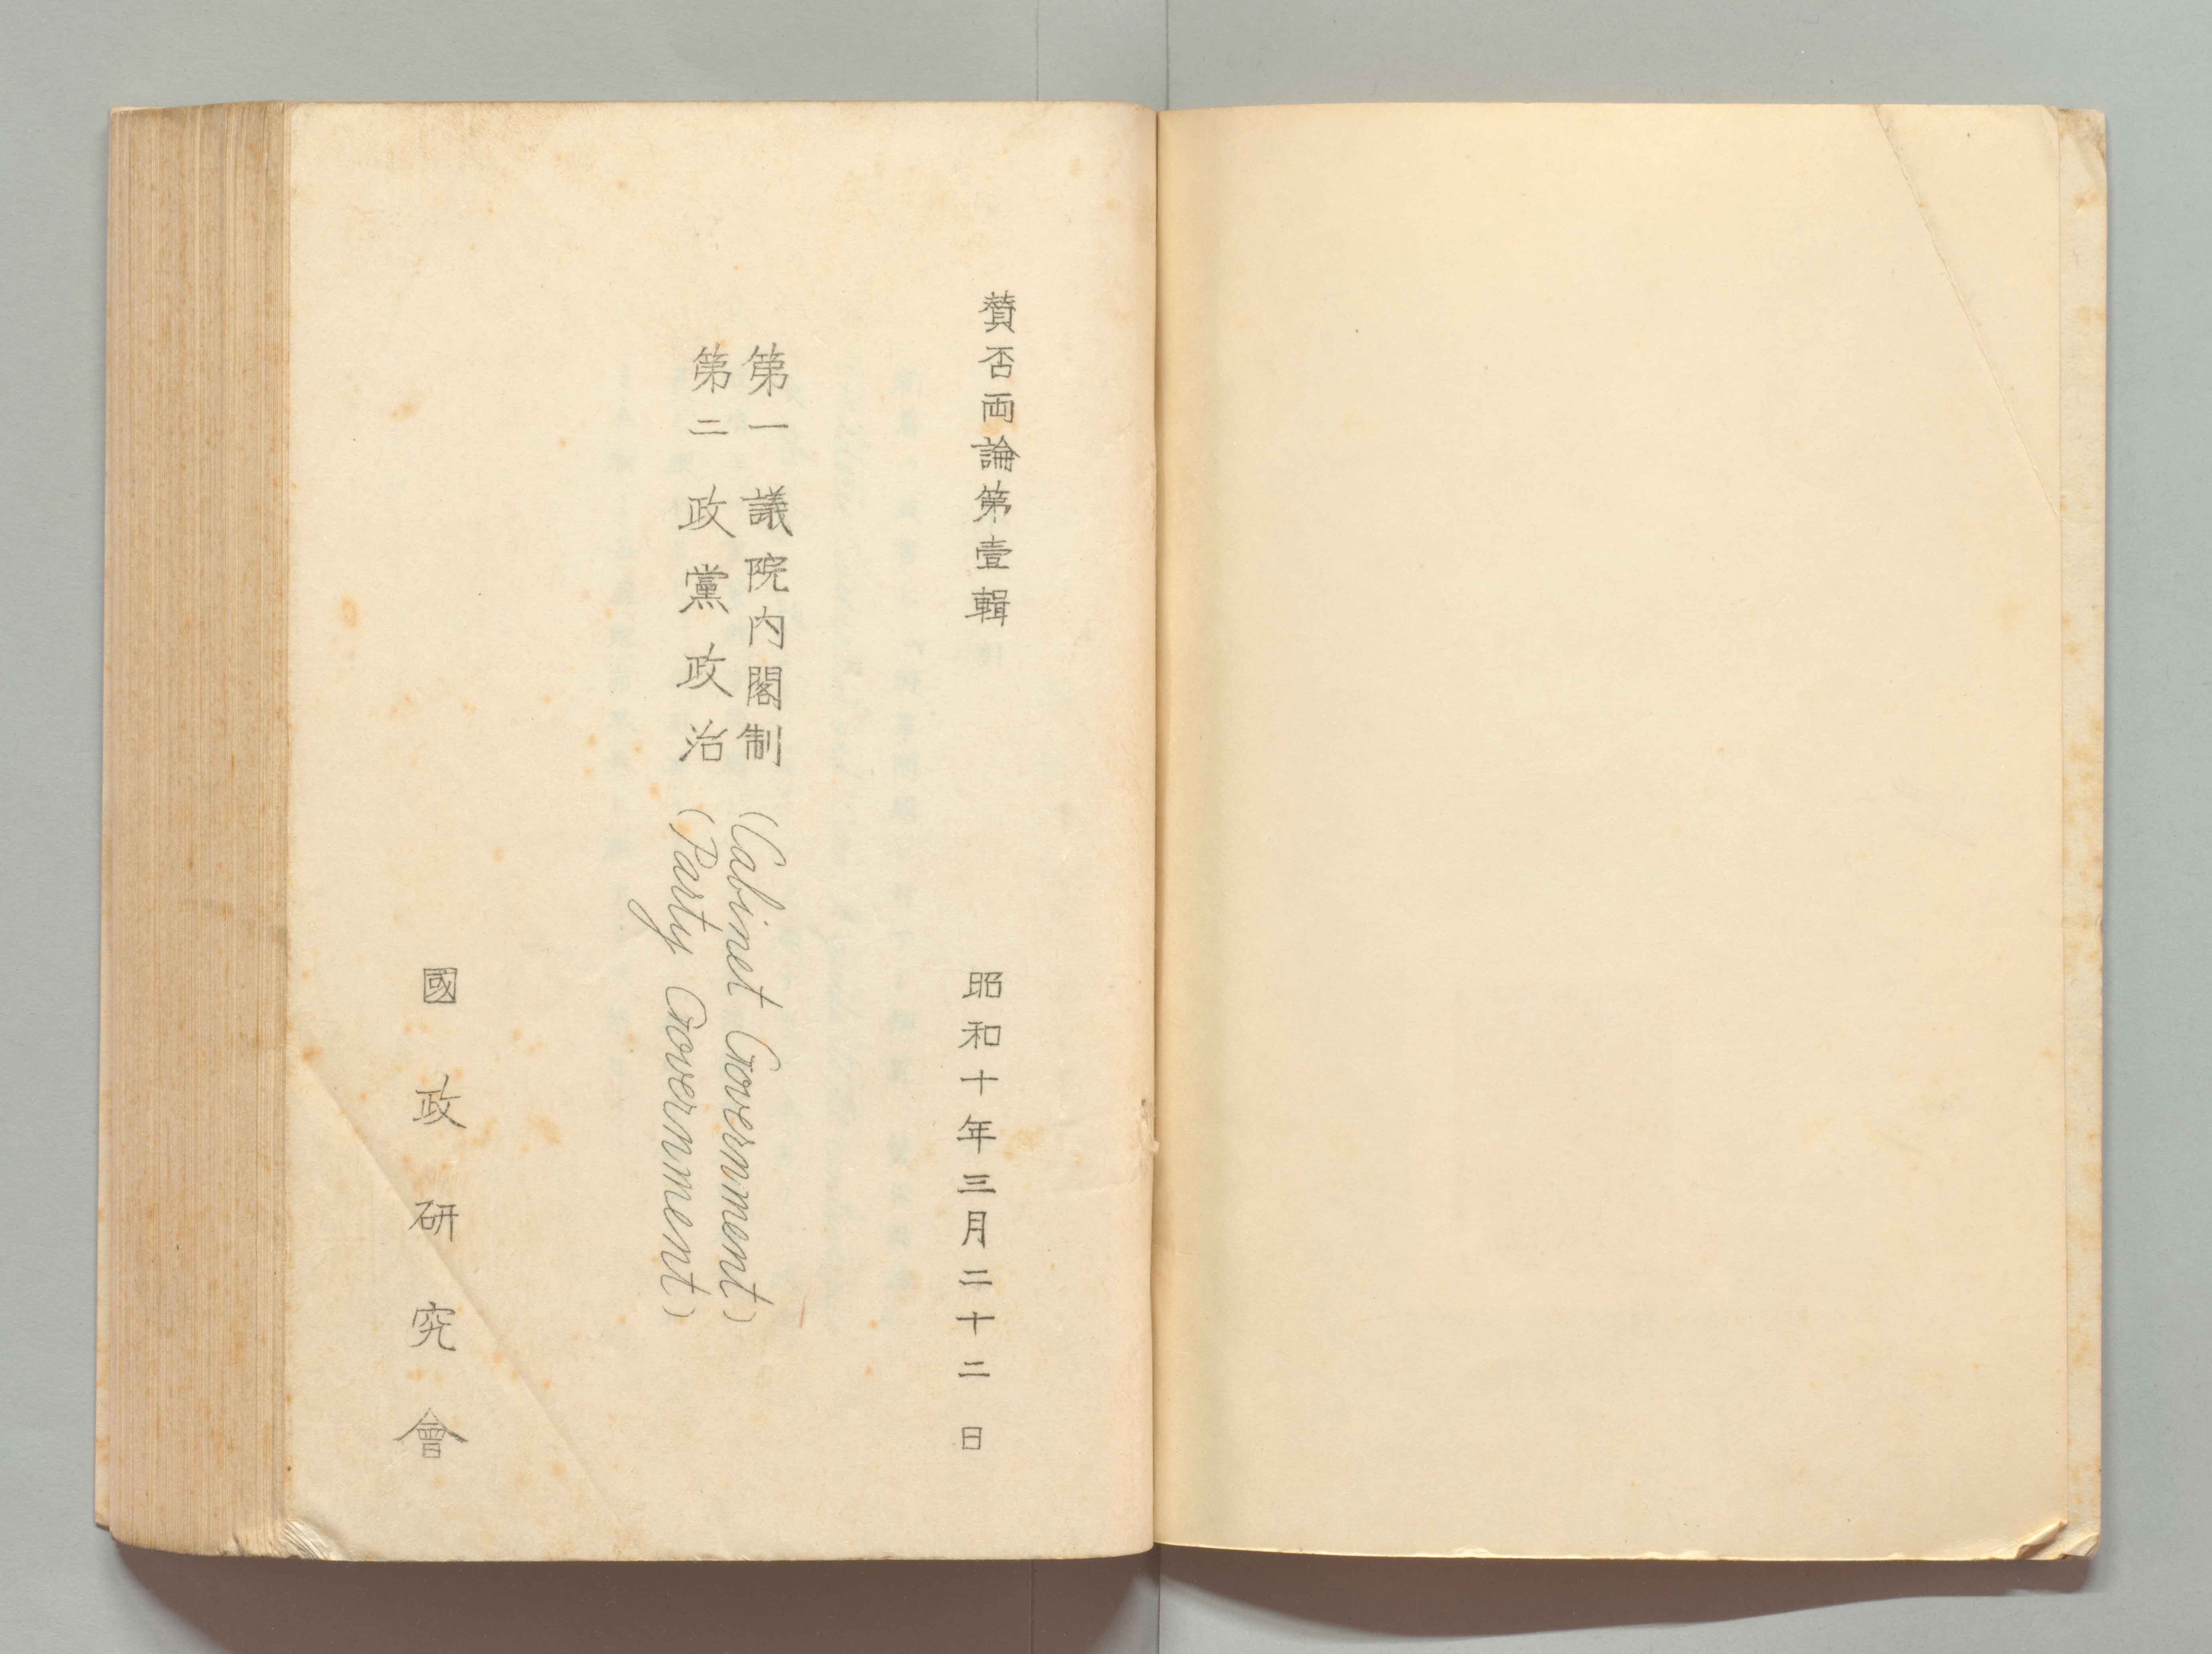 賛否両論第壹輯
昭和十年三月二十二日
第一 議院内閣制 (Cabinet Government)
第二 政黨政治 (Party Government)
國政研究會